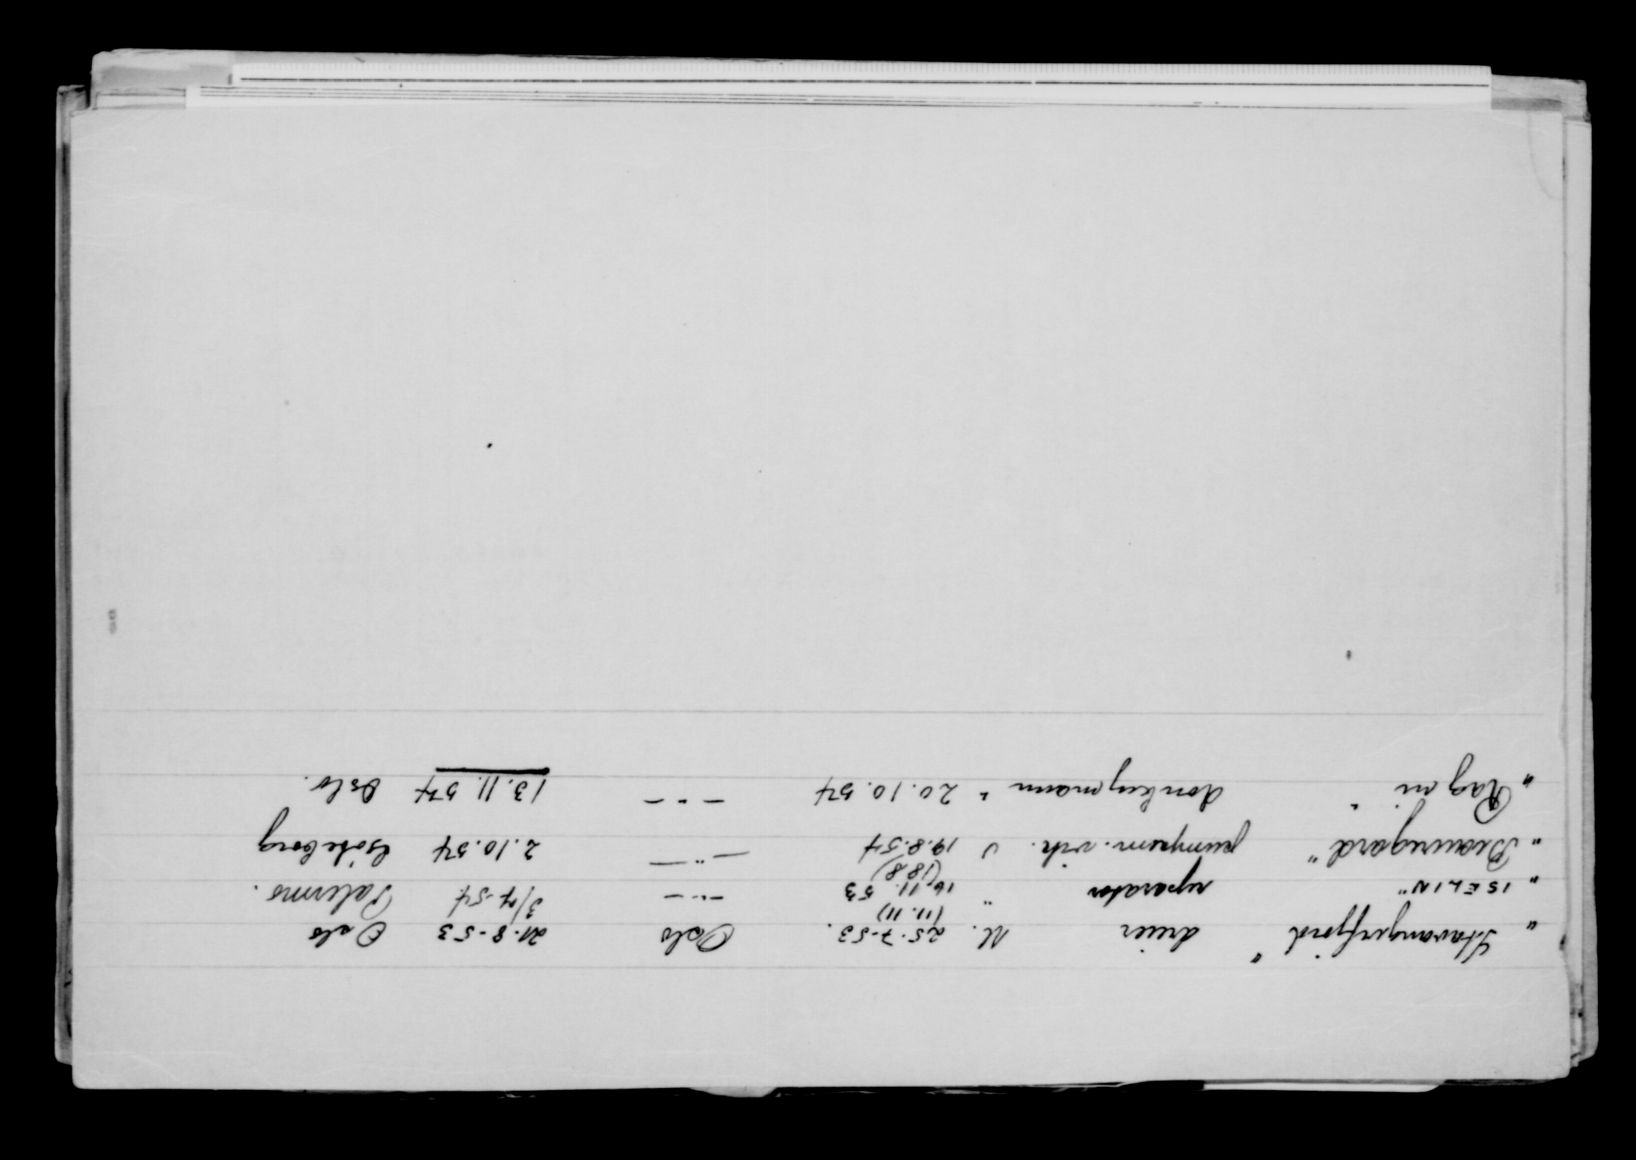 "Stavangerfjord" dreier M. 25.7.53. Oslo 21.8.53 Oslo
(11.11)
"ISELIN" reparatør " 16.11.53 -"- 3/7-54 Palermo.
(18.8)
"Beauregard" pumpem. vik. " 19.8.54 -"- 2.10.54 Göteborg
"Ragni" donkeymann " 20.10.54 -"- 13.11.54 Oslo.